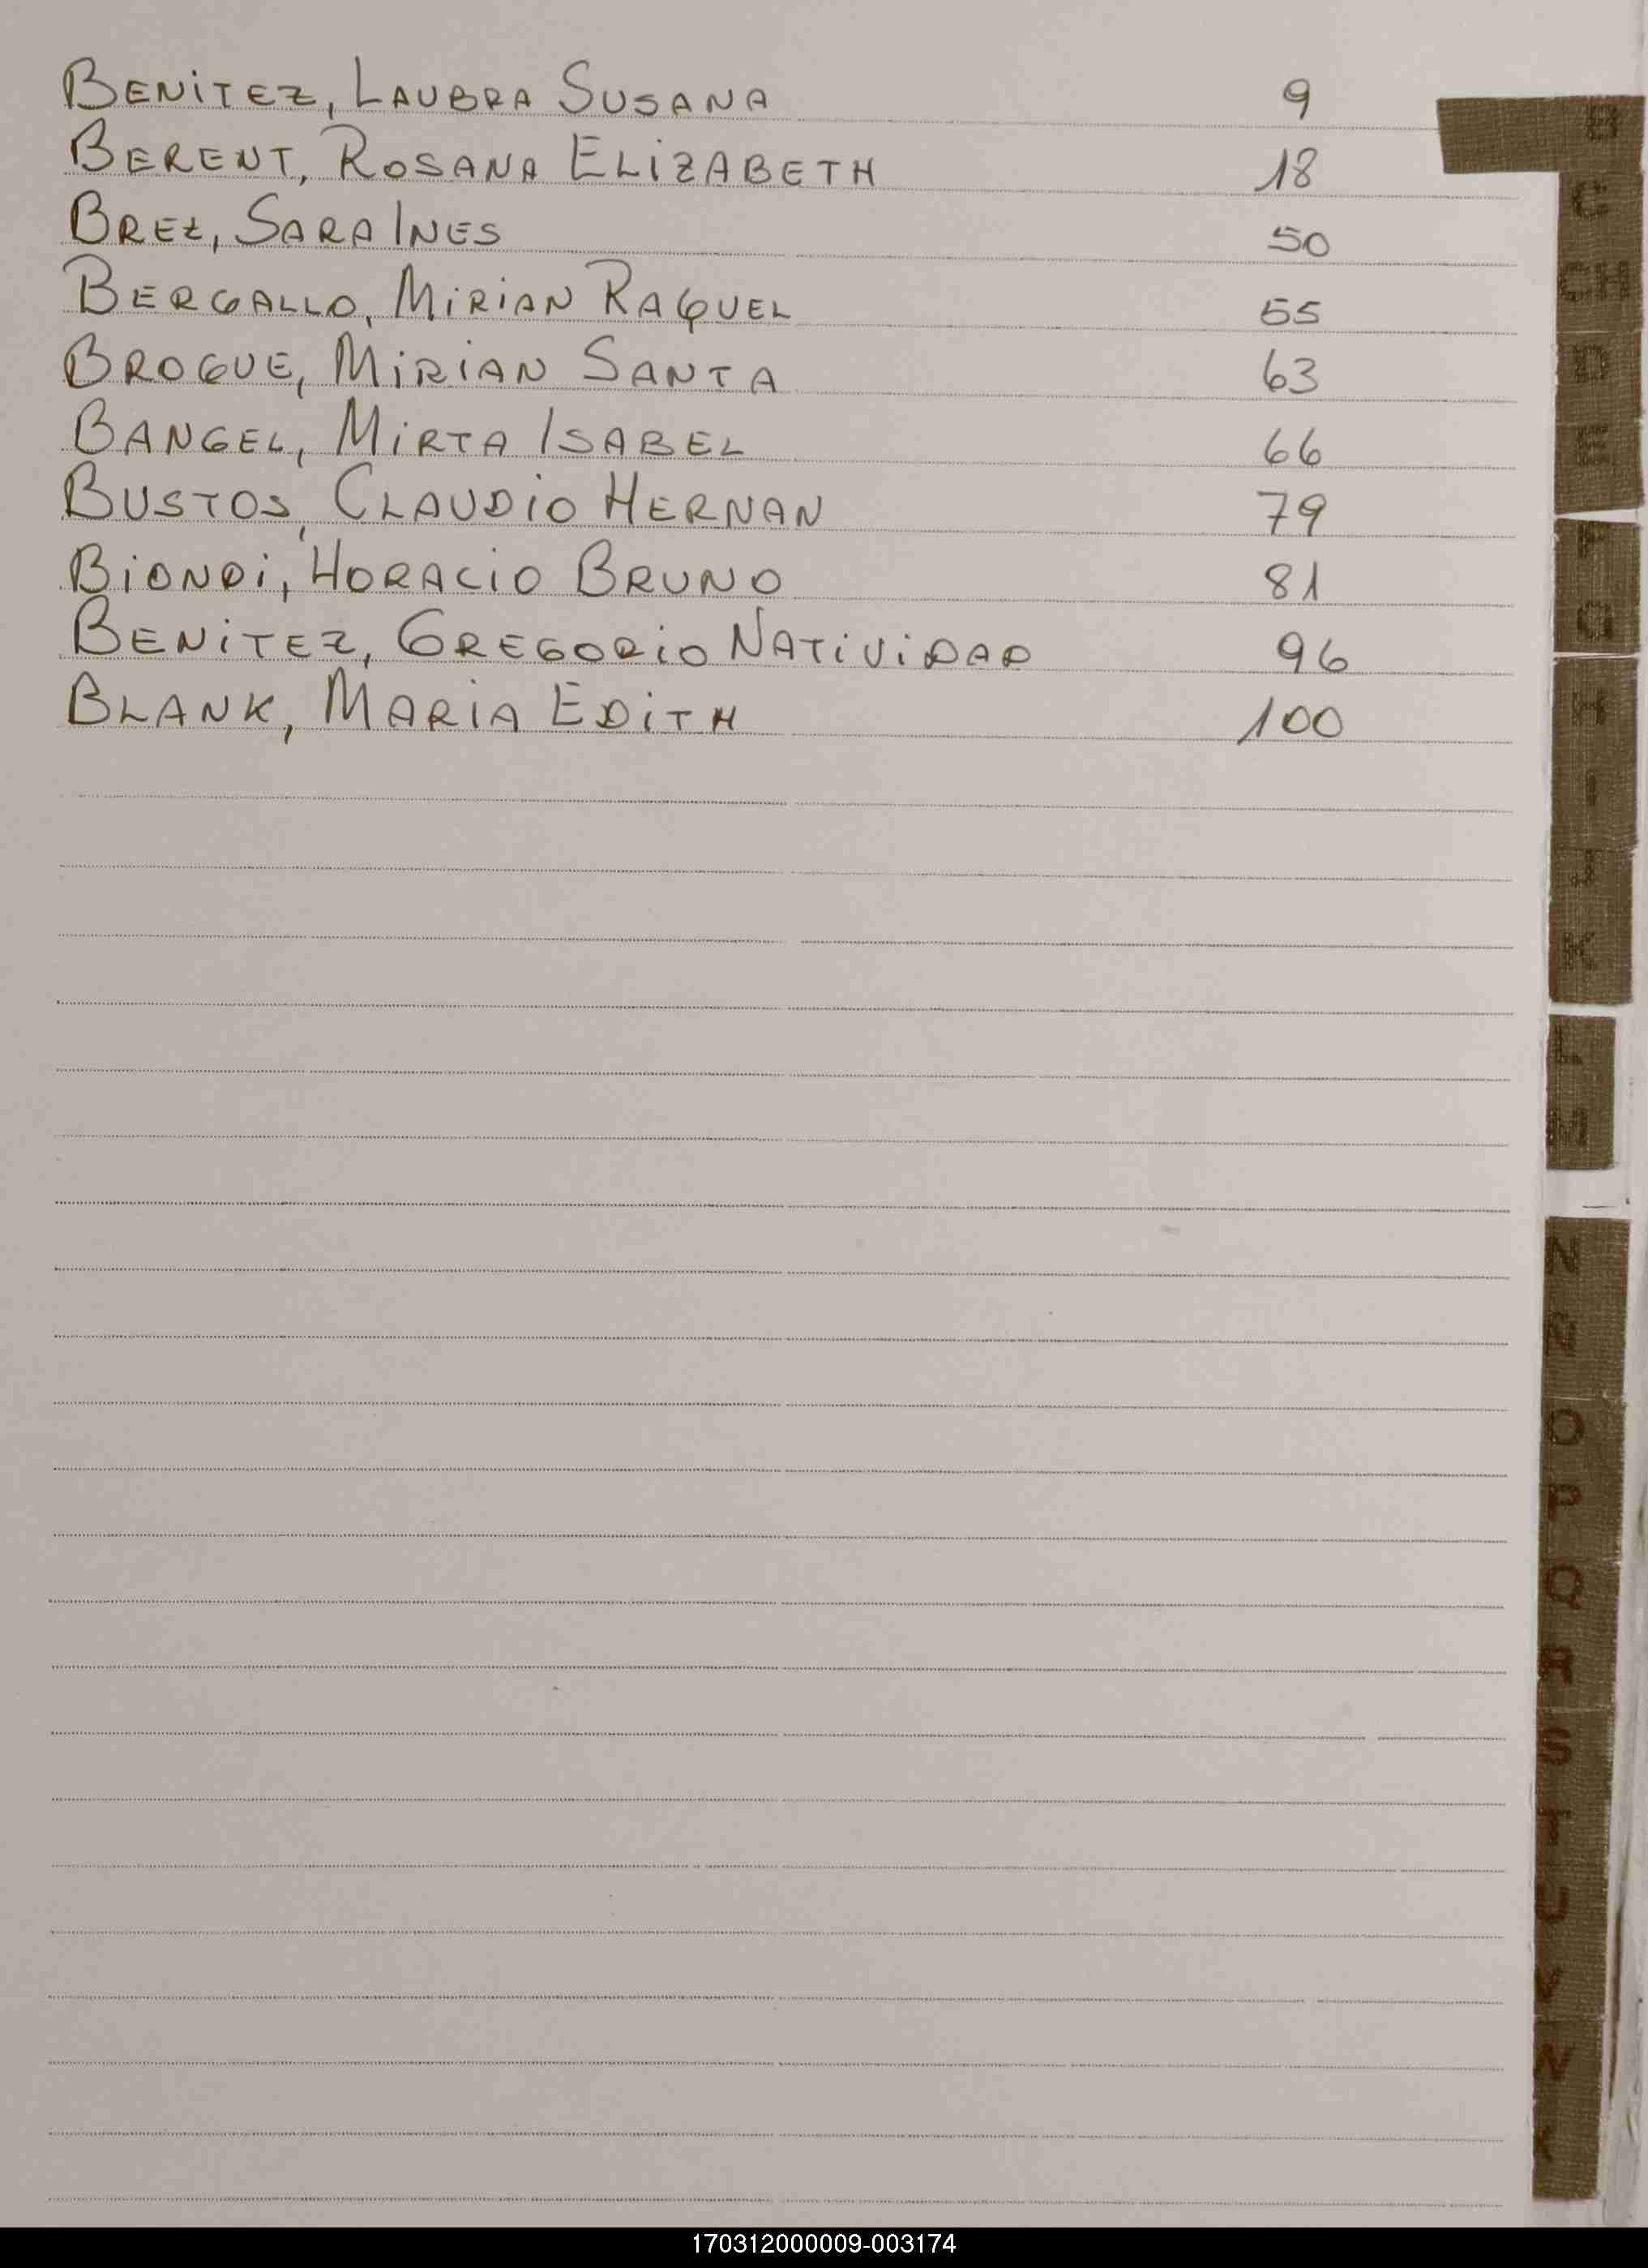 BENITEZ, LAUBRA SUSANA 9
BERENT, ROSANA ELIZABETH 18
BREZ, SARA INES 50
BERGALLO, MIRIAN RAQUEL 55
BROGUE, MIRIAN SANTA 63
BANGEL, MIRTA ISABEL 66
BUSTOS, CLAUDIO HERNAN 79
BIONDI, HORACIO BRUNO 81
BENITEZ, GREGORIO NATIVIDAD 96
BLANK, MARIA EDITH 100
B
C
CH
D
E
F
G
H
I
J
K
L
M
N
Ñ
O
P
Q
R
S
T
U
V
W
170312000009-003174